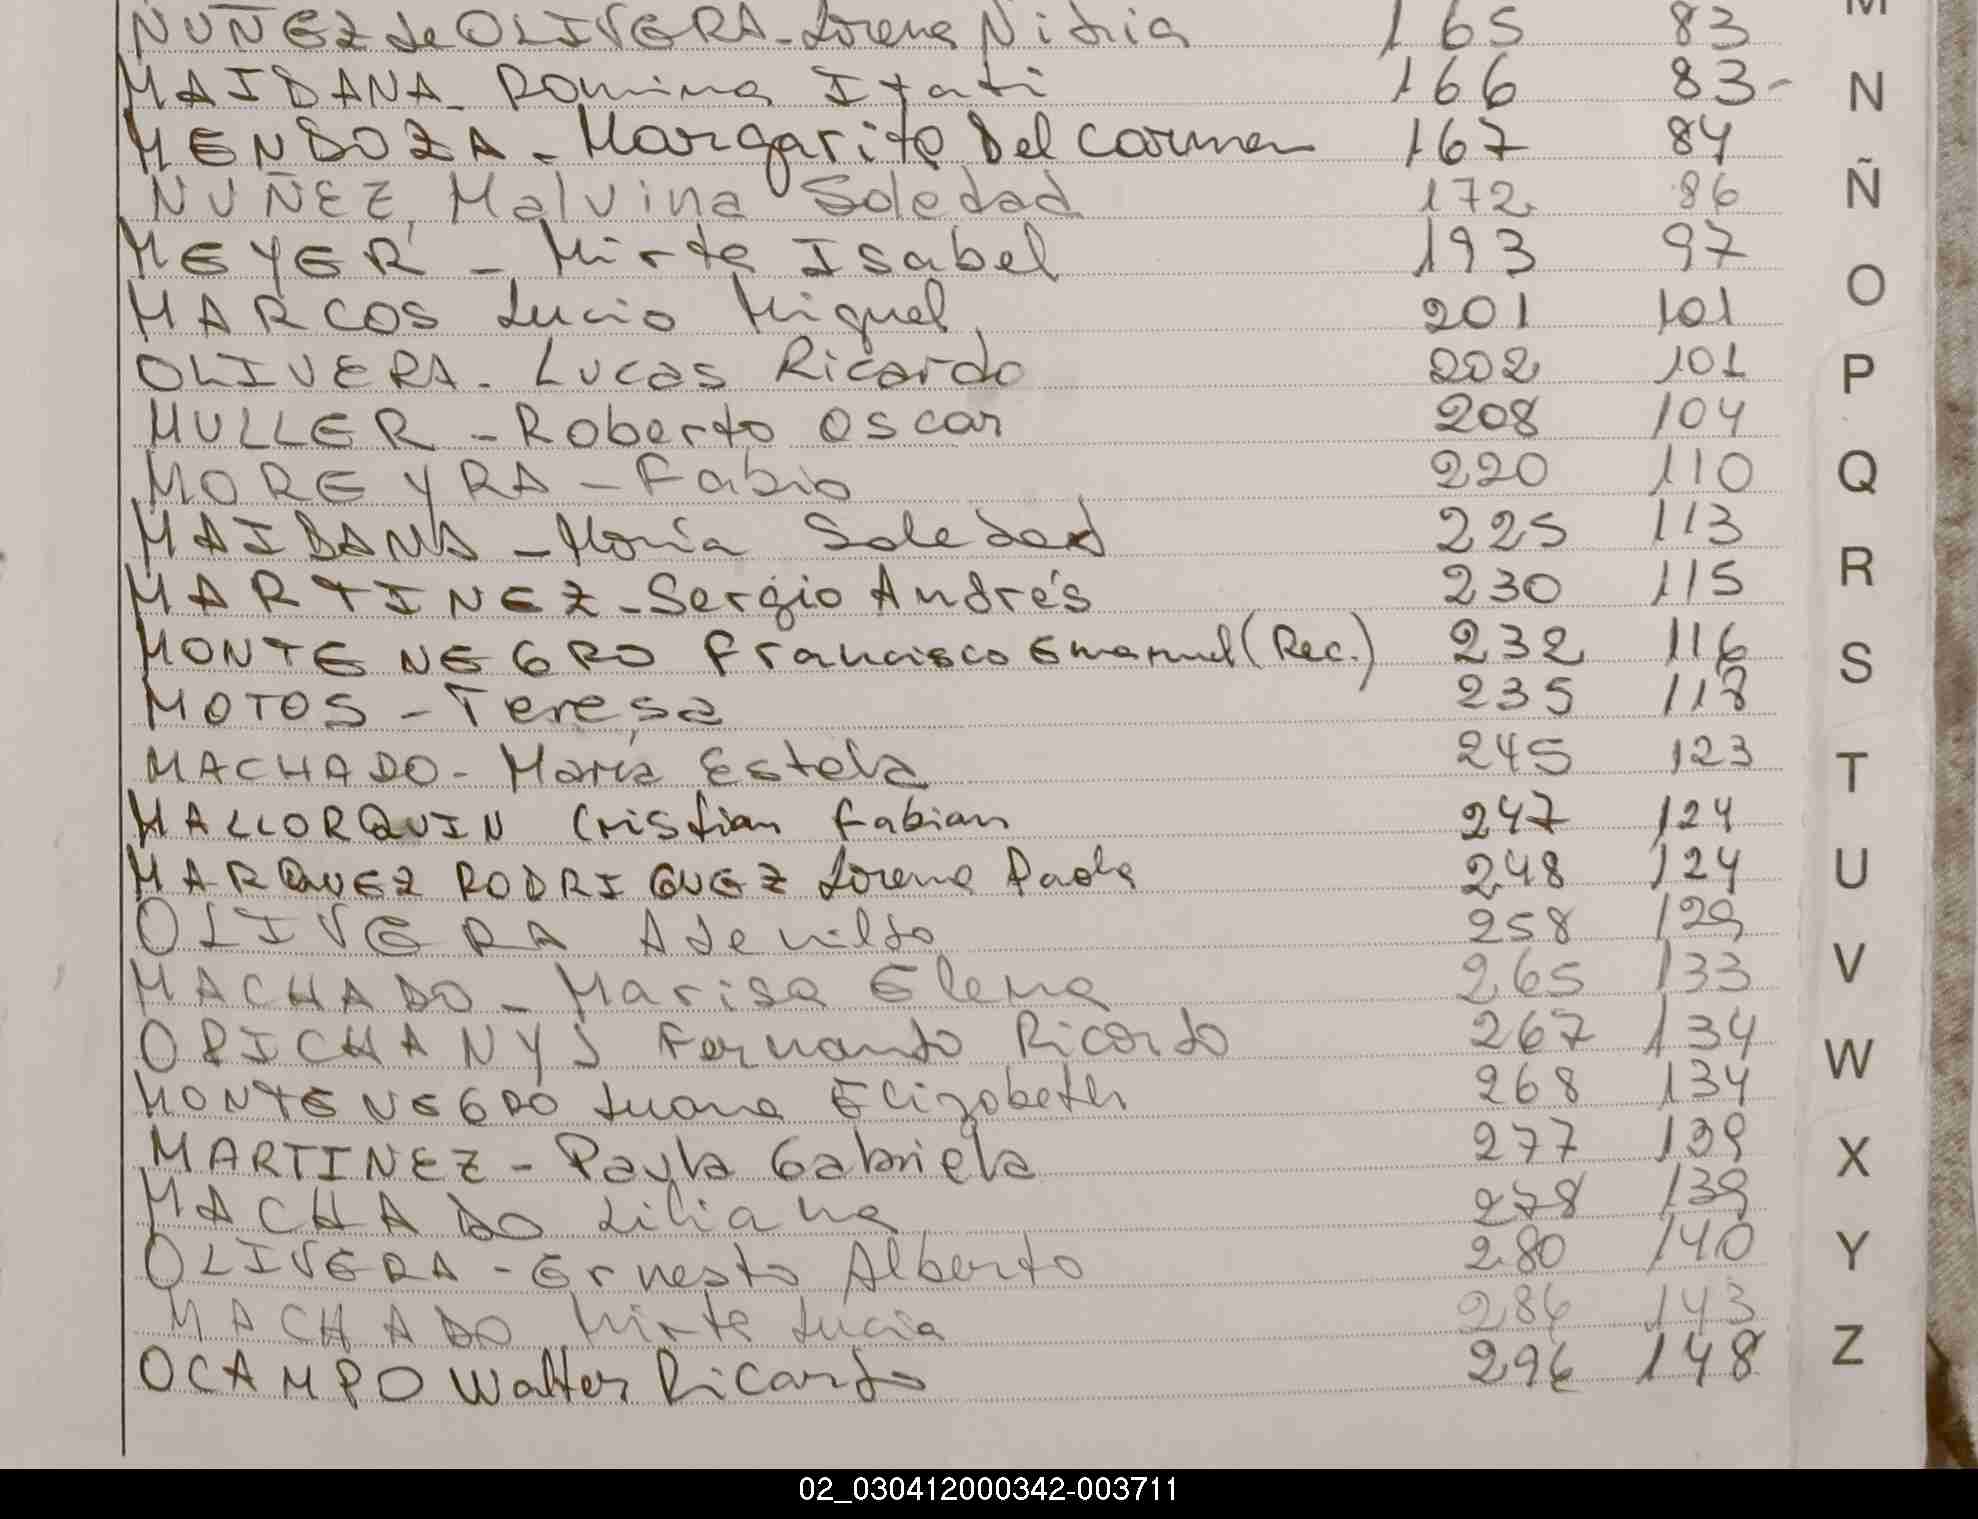 NUÑEZ de OLIVERA - Lorena Nidia 165 83
MAIDANA - Romina Itatí 166 83 -
MENDOZA - Margarita Del Carmen 167 84
NUÑEZ, Malvina Soledad 172 86
MEYER - Mirta Isabel 193 97
MARCOS Lucio Miguel 201 101
OLIVERA - Lucas Ricardo 202 101
MULLER - Roberto Oscar 208 104
MOREYRA - Fabio 220 110
MAIDANA - María Soledad 225 113
MARTINEZ - Sergio Andrés 230 115
MONTENEGRO Francisco Emanuel (Rec.) 232 116
MOTOS - Teresa 235 118
MACHADO - María Estela 245 123
MALLORQUIN Cristian Fabian 247 124
MARQUEZ RODRIGUEZ Lorena Paola 248 124
OLIVERA Adenildo 258 129
MACHADO - Marisa Elena 265 133
Fernando Ricardo 267 134
MONTENEGRO Luana Elizabeth 268 134
MARTINEZ - Paula Gabriela 277 139
MACHADO Liliana 278 139
OLIVERA - Ernesto Alberto 280 140
MACHADO Mirta Lucia 286 143
OCAMPO Walter Ricardo 296 148
M
N
Ñ
O
P
Q
R
S
T
U
V
W
X
Y
Z
02_030412000342-003711